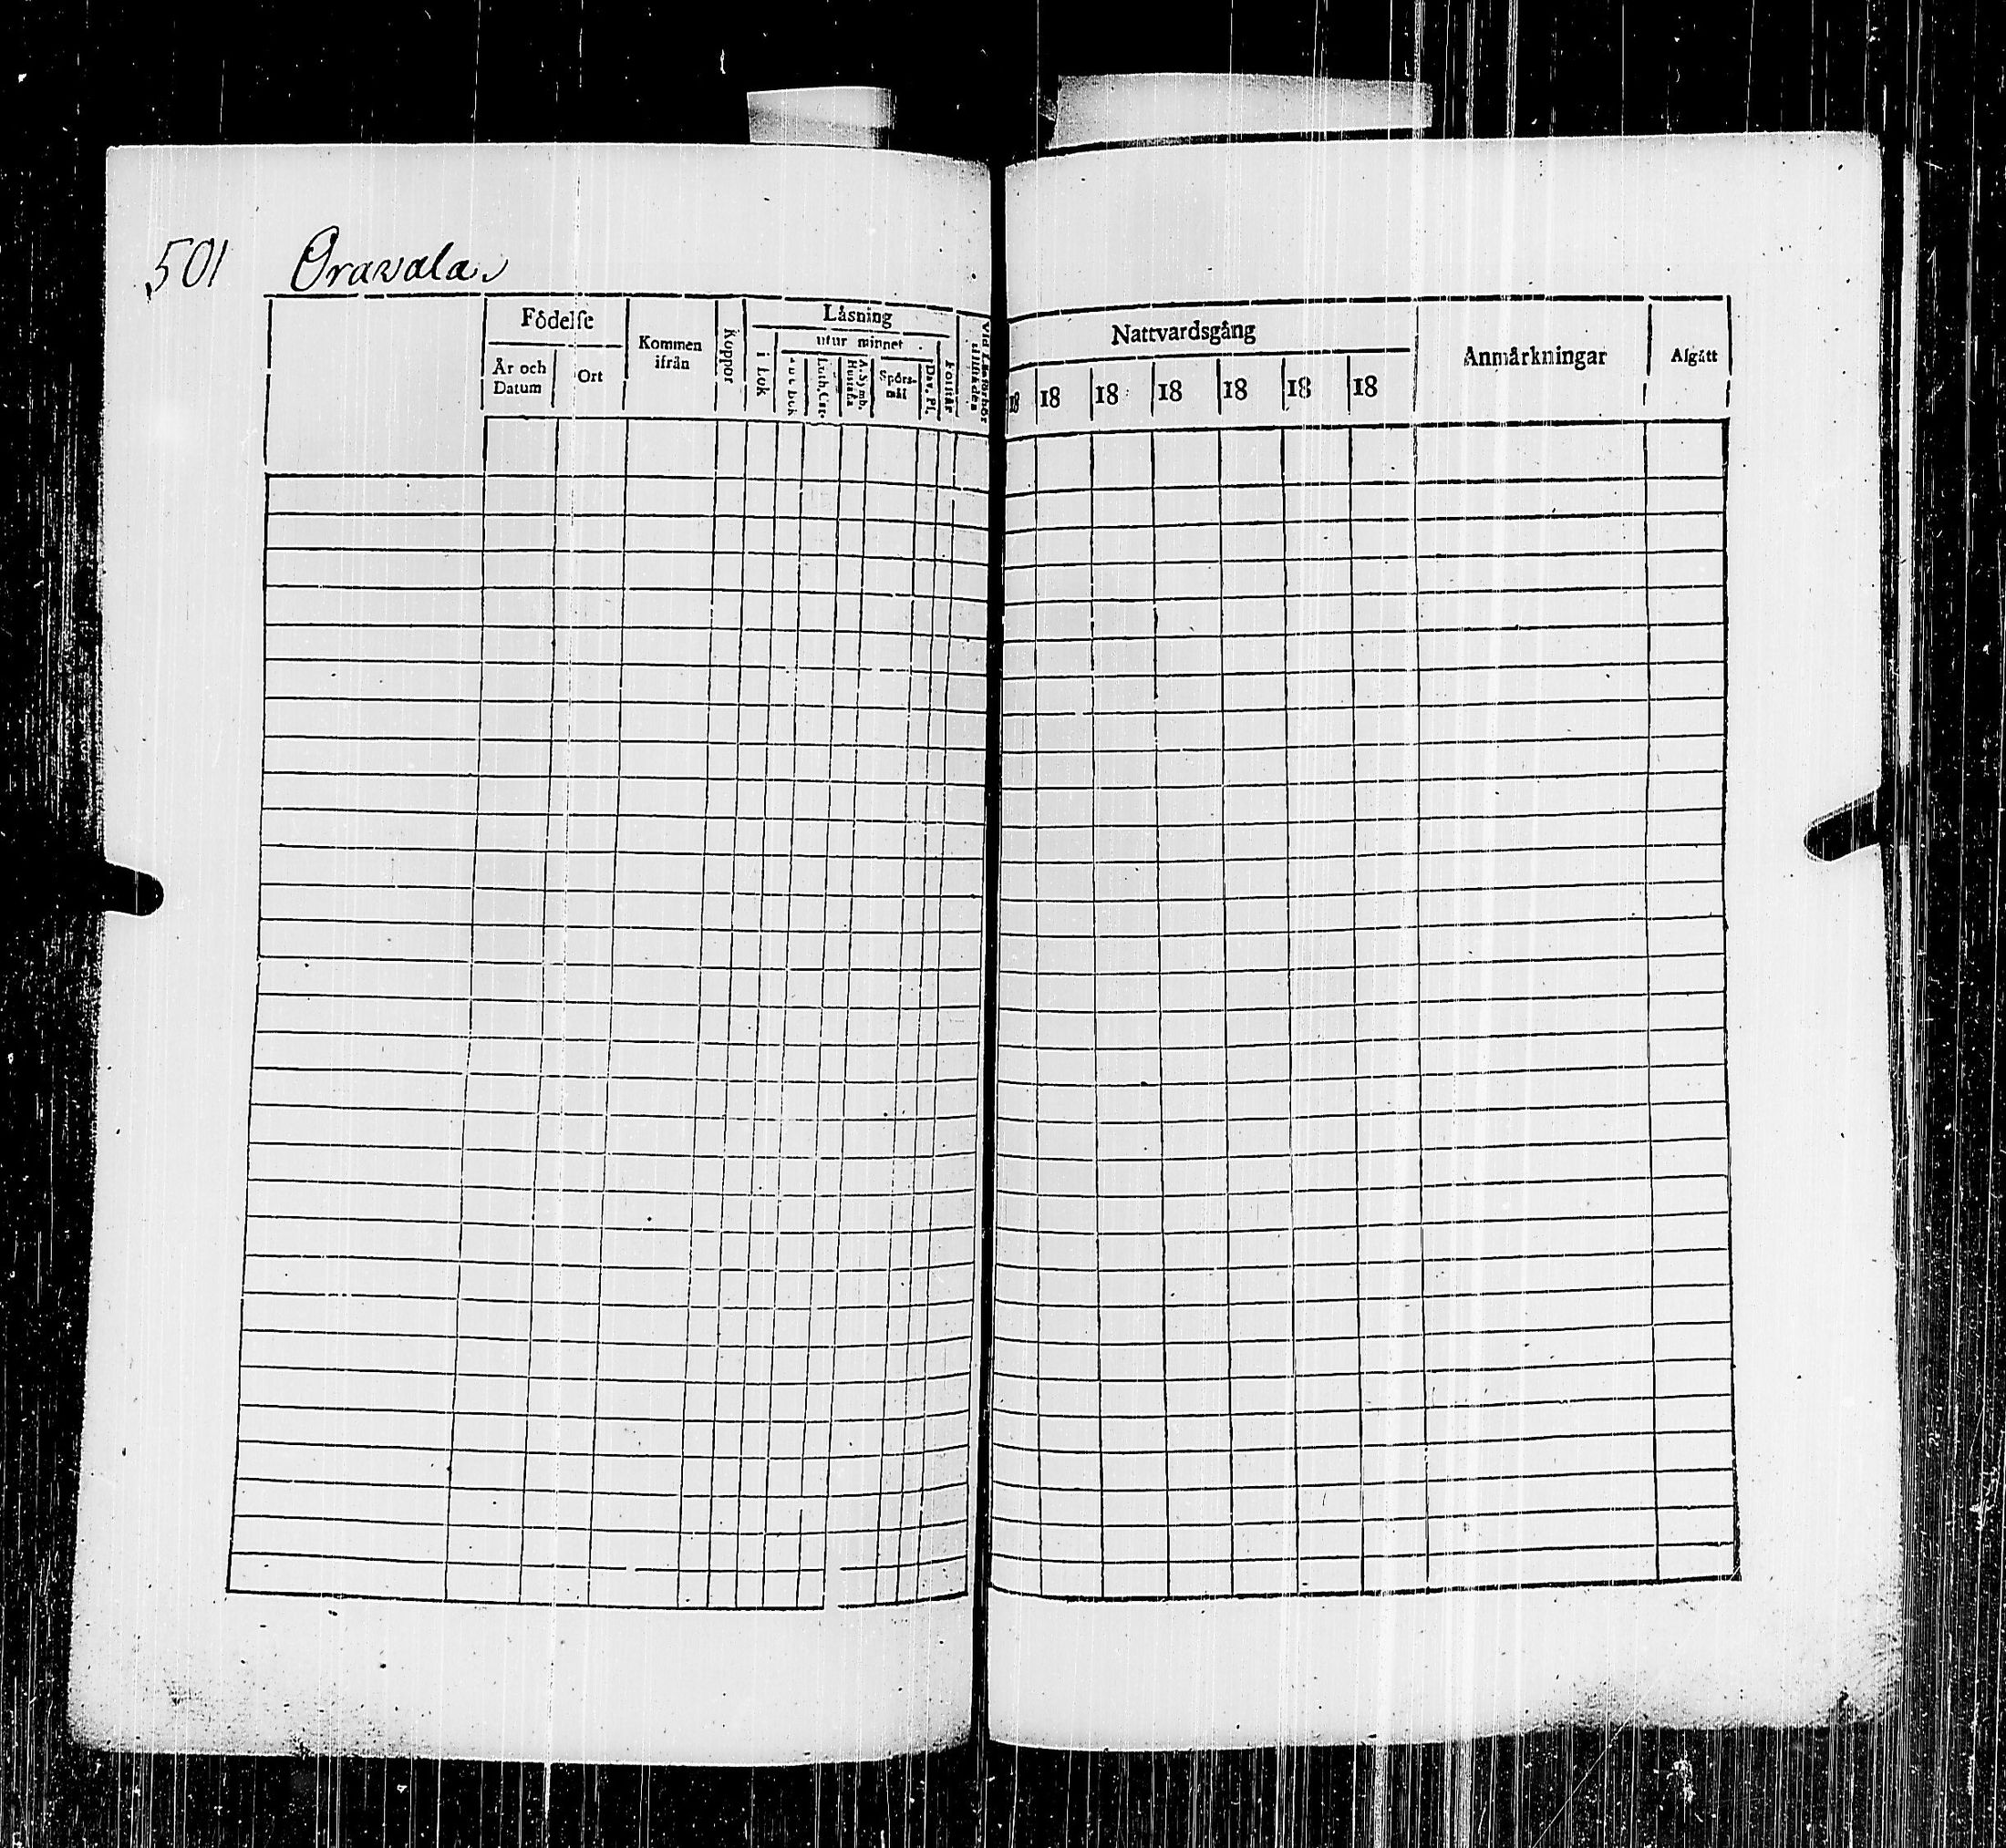 501 Oravala
Födelse
År och Datum
Ort
Kommen ifrån
Koppor
Läsning
i bok
utur minnet
Luth. Cat.
A. Symb. Hustafla
Spörs-mål
Dav. Ps.
Förstår
Nattvardsgång
18 18 18 18 18 18 18
Anmärkningar
Afgått